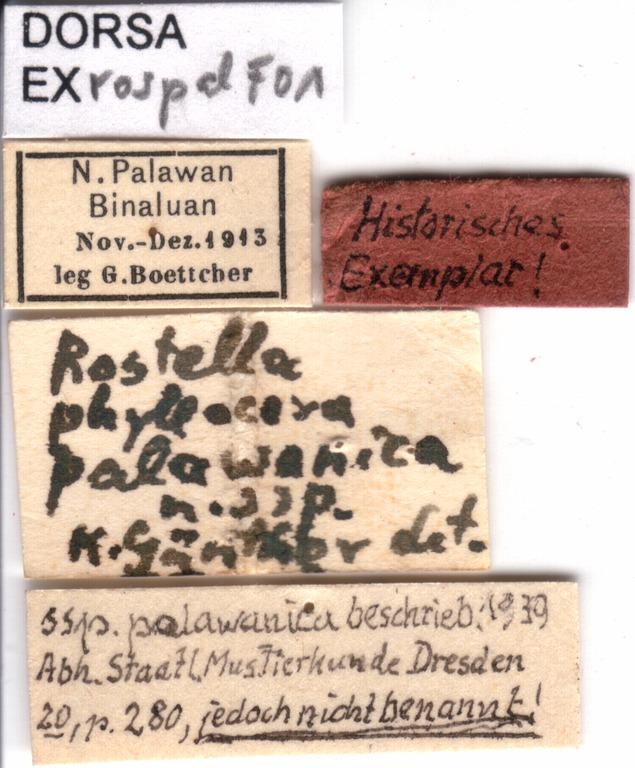 DORSA
EXrospalF01
N. Palawan
Binaluan
Nov.-Dez.1913
leg G.Boettcher
Historisches
Exemplar!
Rostella
phyllocera
palawanica
n.ssp.
K.Günther det.
ssp. palawanica beschrieb. 1939
Abh. Staatl. Mus Tierkunde Dresden
20, p. 280, jedoch nicht benannt!